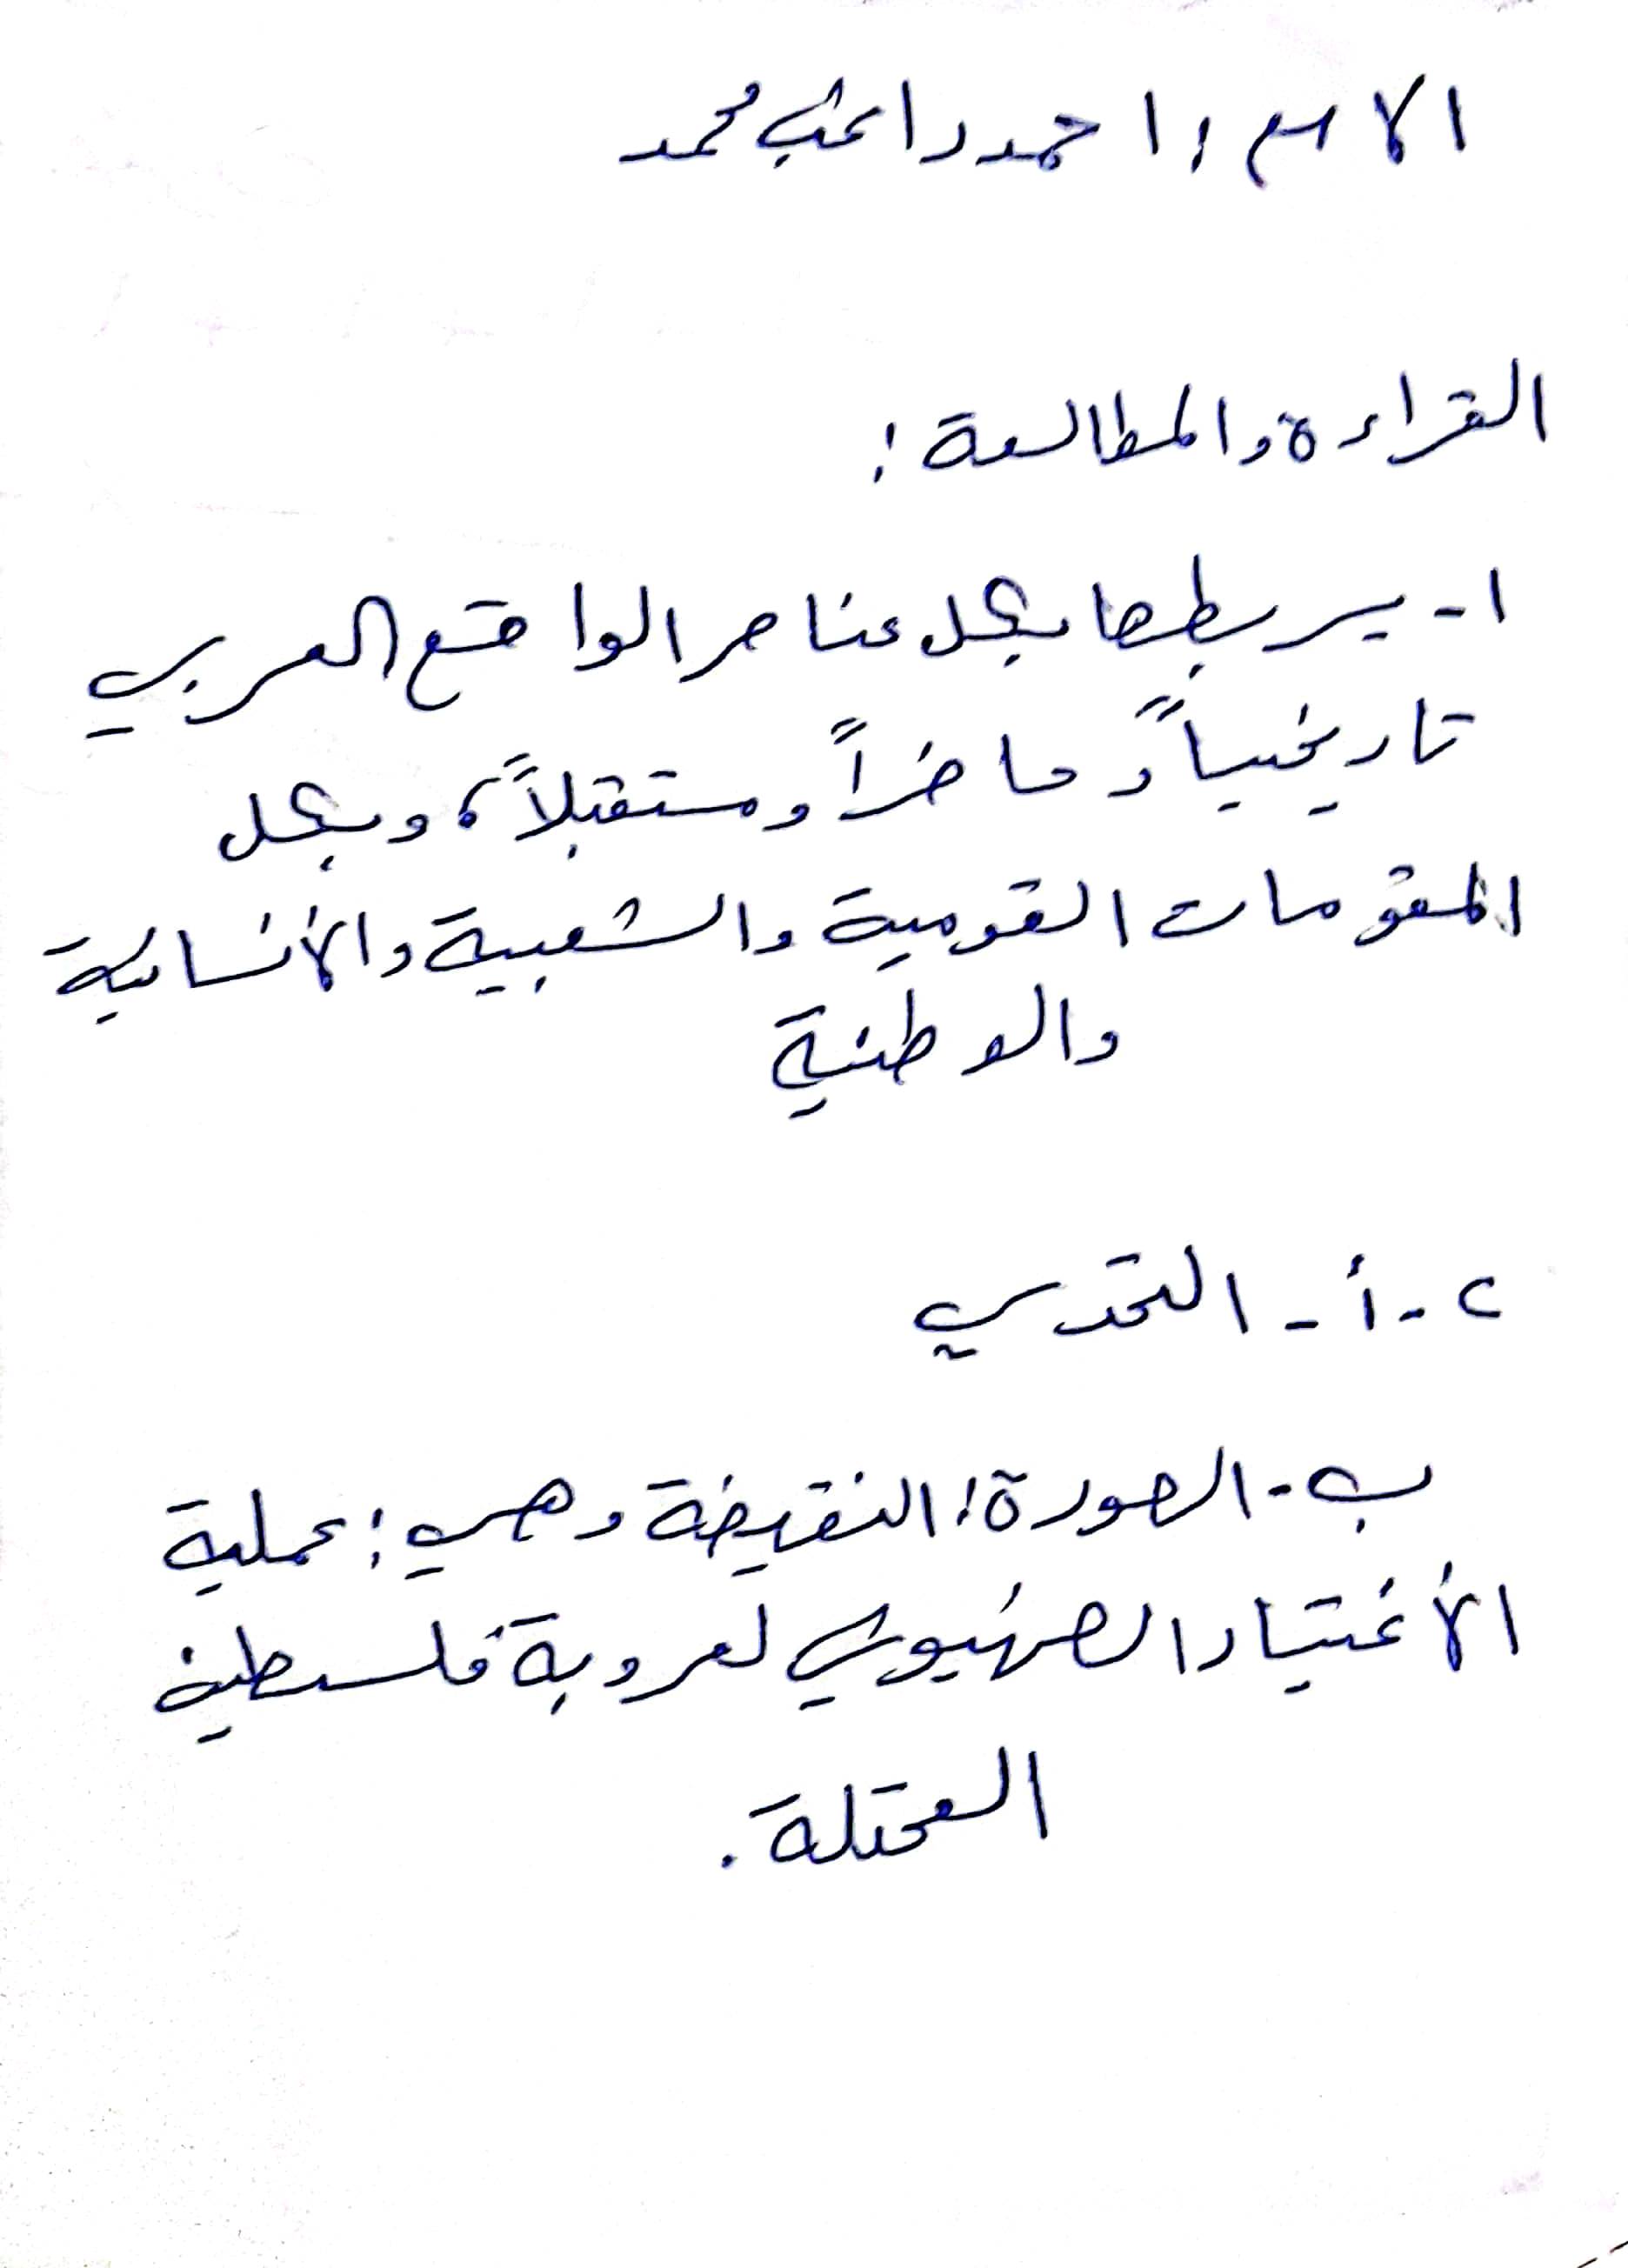 الاسم: احمد راغب محمد
القراءة والمطالعة:
١- يربطها بكل عناصر الواقع العربي
تاريخياً وحاضراً ومستقبلاً، وبكل
المقومات القومية والشعبية والأنسانية
والوطنية
٢- أ- التحدي
ب- الصورة: النقيضة وهي: عملية
الأغتيار الصهيوني لعروبة فلسطين
المحتلة.